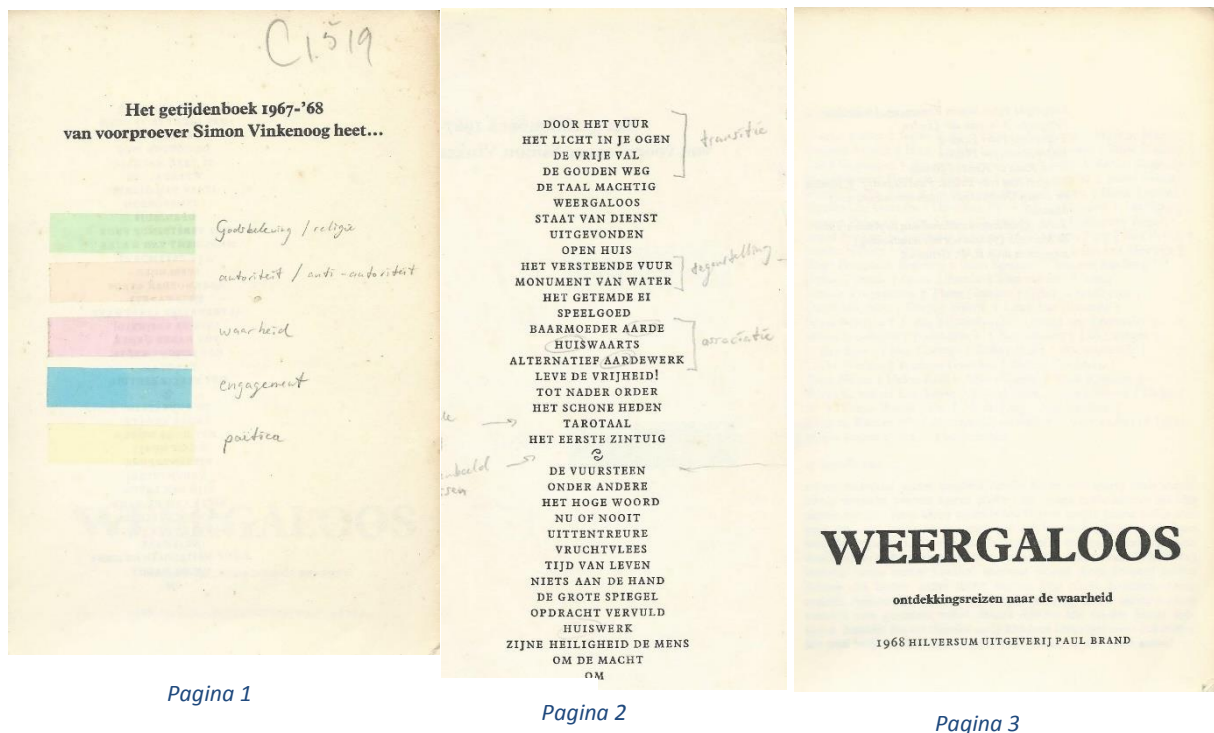 C1.519
Het getijdenboek 1967-’68
van voorproever Simon Vinkenoog heet...
Godsbeleving / religie
autoriteit / anti-autoriteit
waarheid
engagement
poëtica
Pagina 1
DOOR HET VUUR
HET LICHT IN JE OGEN
DE VRIJE VAL
DE GOUDEN WEG
transitie
DE TAAL MACHTIG
WEERGALOOS
STAAT VAN DIENST
UITGEVONDEN
OPEN HUIS
HET VERSTEENDE VUUR
MONUMENT VAN WATER
tegenstelling
HET GETEMDE EI
SPEELGOED
BAARMOEDER AARDE
HUISWAARTS
ALTERNATIEF AARDEWERK
associatie
LEVE DE VRIJHEID!
TOT NADER ORDER
HET SCHONE HEDEN
TAROTAAL
HET EERSTE ZINTUIG
DE VUURSTEEN
ONDER ANDERE
HET HOGE WOORD
NU OF NOOIT
UITTENTREURE
VRUCHTVLEES
TIJD VAN LEVEN
NIETS AAN DE HAND
DE GROTE SPIEGEL
OPDRACHT VERVULD
HUISWERK
ZIJNE HEILIGHEID DE MENS
OM DE MACHT
OM
Pagina 2
WEERGALOOS
ontdekkingsreizen naar de waarheid
1968 HILVERSUM UITGEVERIJ PAUL BRAND
Pagina 3